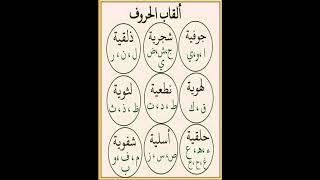 ألقاب الحروف
جوفية
ا، و، ي
شجرية
ج، ش، ض
ي
ذلقية
ل، ن، ر
لهوية
ق، ك
نطعية
ط، د، ت
لثوية
ظ، ذ، ث
حلقية
ء، هـ، ع
غ، ح، خ
أسلية
ص، س، ز
شفوية
م، ف، ب
و